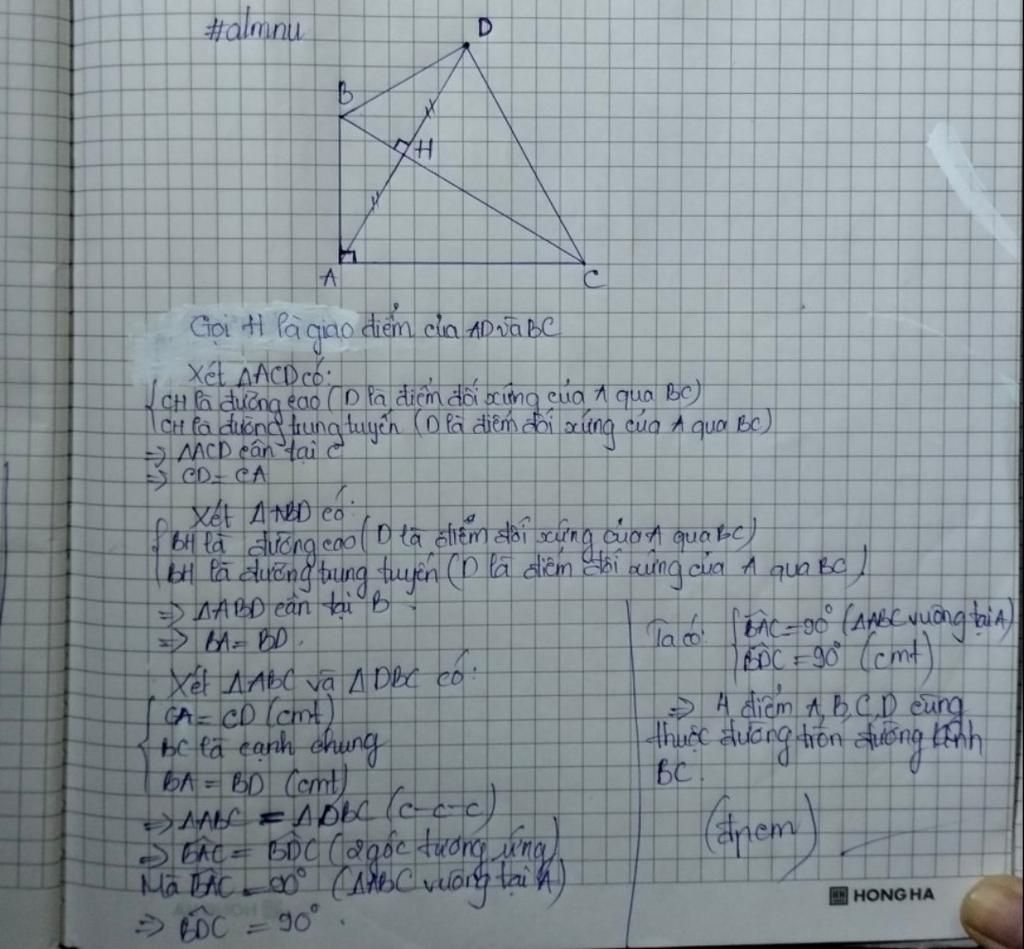 #almnu
D
B
H
A
C
Gọi H là giao điểm của AD và BC
Xét ΔACD có:
CH là đường cao (D là điểm đối xứng của A qua BC)
CH là đường trung tuyến (D là điểm đối xứng của A qua BC)
=> ΔACD cân tại C
=> CD = CA
Xét ΔABD có:
BH là đường cao (D là điểm đối xứng của A qua BC)
BH là đường trung tuyến (D là điểm đối xứng của A qua BC)
=> ΔABD cân tại B
=> BA = BD.
Xét ΔABC và ΔDBC có:
CA = CD (cmt)
BC là cạnh chung
BA = BD (cmt)
=> ΔABC = ΔDBC (c-c-c)
=> B̂AC = B̂DC (2 góc tương ứng)
Mà B̂AC = 90° (ΔABC vuông tại A)
=> B̂DC = 90°.
Ta có: B̂AC = 90° (ΔABC vuông tại A)
B̂DC = 90° (cmt)
=> 4 điểm A, B, C, D cùng
thuộc đường tròn đường kính
BC.
(đpcm)
HONG HA